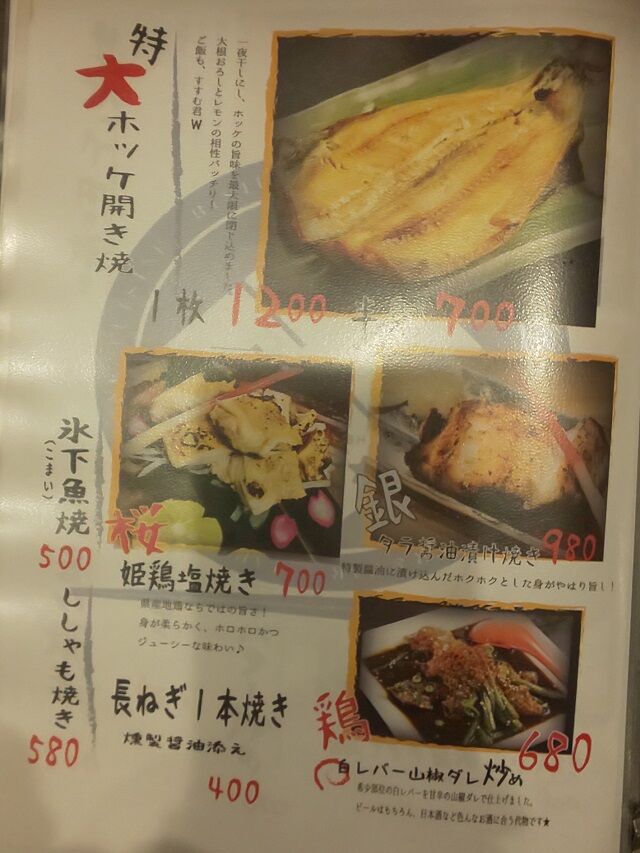 特大ホッケ開き焼
一夜干しにし、ホッケの旨味を最大限に閉じ込めました。
大根おろしとレモンの相性バッチリ〜
ご飯も、すすむ君W
1枚 1200 半 700
氷下魚焼
(こまい)
500
ししゃも焼き
580
桜
姫鶏塩焼き 700
県産地鶏ならではの旨さ！
身が柔らかく、ホロホロかつ
ジューシーな味わい♪
長ねぎ1本焼き
燻製醤油添え
400
銀
タラ醤油漬け焼き 980
特製醤油に漬け込んだホクホクとした身がやはり旨し！
鶏
白レバー山椒ダレ炒め
680
希少部位の白レバーを甘辛の山椒ダレで仕上げました。
ビールはもちろん、日本酒など色んなお酒に合う代物です★